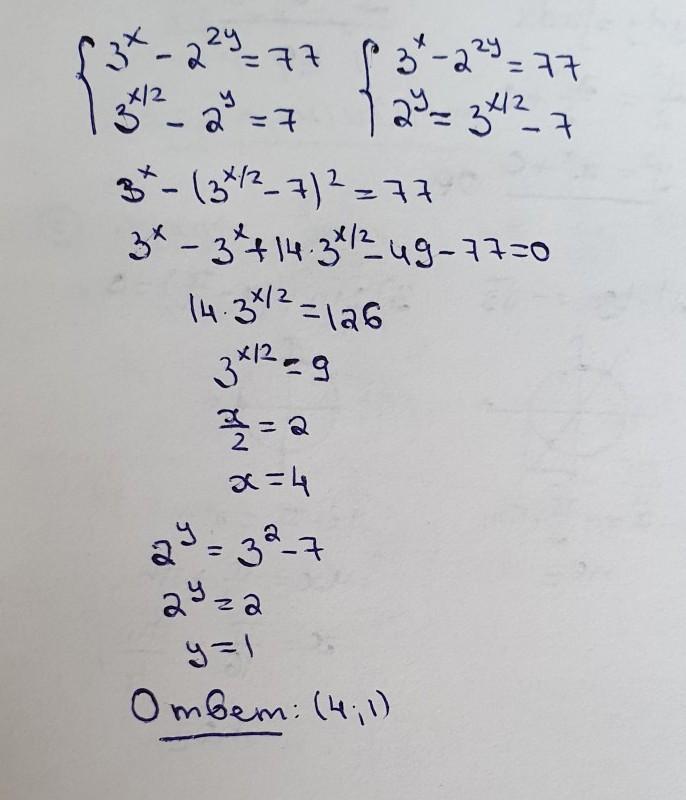 { 3^x - 2^{2y} = 77 { 3^x - 2^{2y} = 77
3^{x/2} - 2^y = 7 2^y = 3^{x/2} - 7
3^x - (3^{x/2} - 7)^2 = 77
3^x - 3^x + 14 · 3^{x/2} - 49 - 77 = 0
14 · 3^{x/2} = 126
3^{x/2} = 9
x/2 = 2
x = 4
2^y = 3^2 - 7
2^y = 2
y = 1
Ответ: (4; 1)